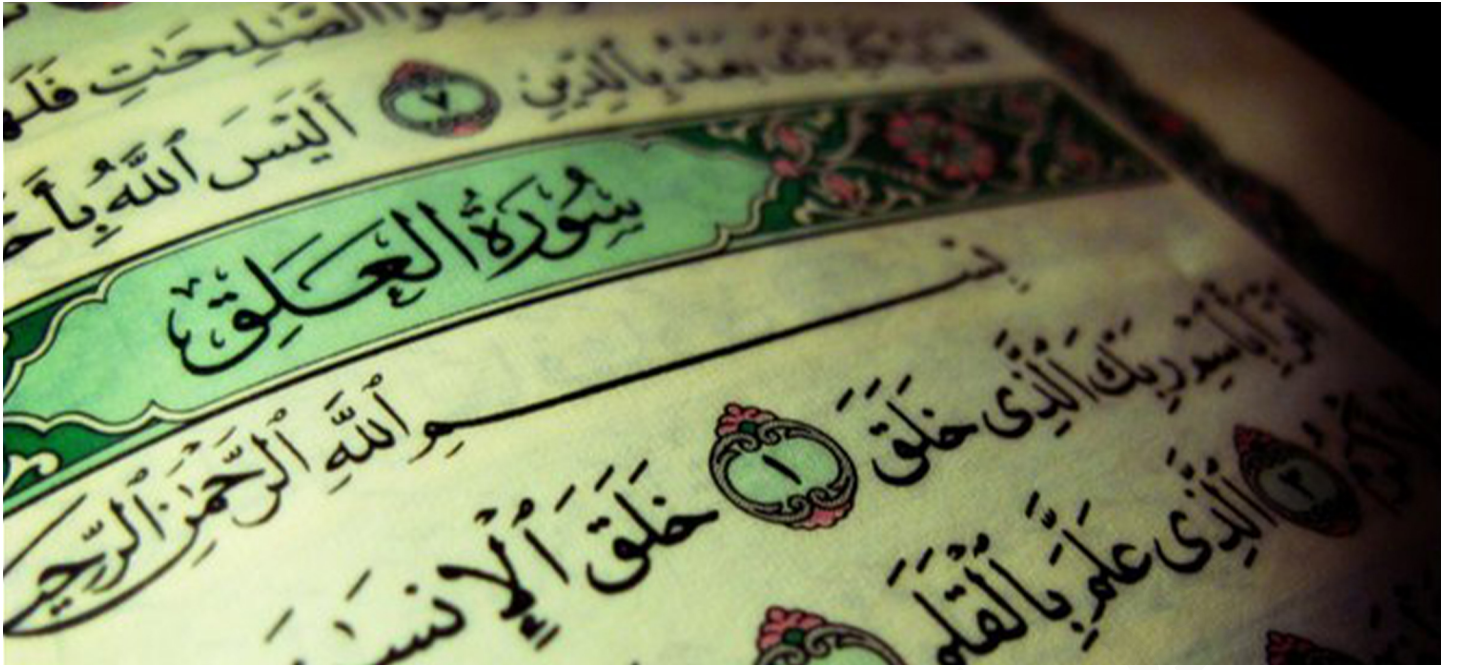 ٱلصَّٰلِحَٰتِ
فَمَا يُكَذِّبُكَ بَعْدُ بِٱلدِّينِ ٧ أَلَيْسَ ٱللَّهُ
سُورَةُ العَلَقِ
بِسْمِ ٱللَّهِ ٱلرَّحْمَٰنِ ٱلرَّحِي
ٱقْرَأْ بِٱسْمِ رَبِّكَ ٱلَّذِى خَلَقَ ١ خَلَقَ ٱلْإِنسَٰنَ
ٱلْأَكْرَمُ ٣ ٱلَّذِى عَلَّمَ بِٱلْقَلَمِ